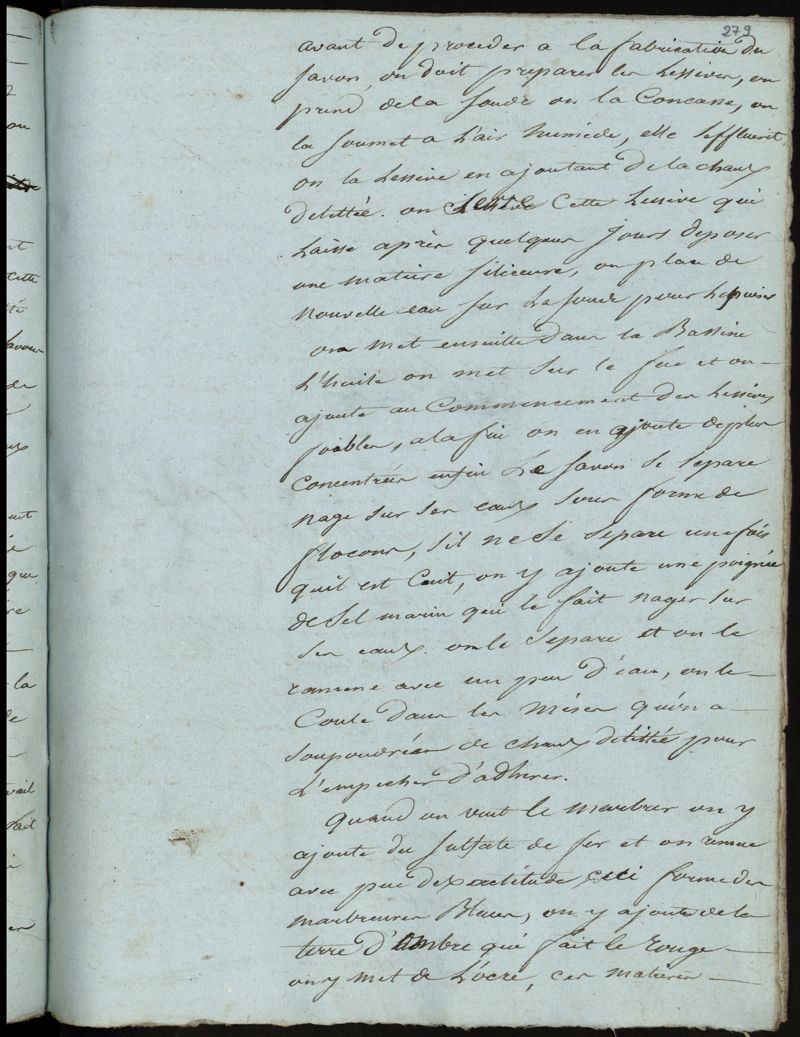 279
avant de proceder a la fabrication du
savon, on doit preparer les Lessives, on
prend de la soude on la Concasse, on
la soumet a l'air humide, elle s'effleurit
on la Lessive en ajoutant de la chaux
delittée. on Cette Lessive qui
Laisse après quelques jours deposer
une matiere siliceuse, on place de
nouvelle eau sur la soude pour L'epuiser
on met ensuitte dans la Bassine
L'huile on met sur le feu et on
ajoute au Commencement des Lessives
foibles, a la fin on en ajoute de plus
Concentrées enfin Le savon se separe
nage sur ses eaux sous forme de
flocons, s'il ne se separe une fois
qu'il est Cuit, on y ajoute une poignée
de sel marin qui le fait nager sur
ses eaux. on le separe et on le
ramene avec un peu d'eau, on le
Coule dans les mises qu'on a
soupoudrées de chaux delittée pour
L'empecher d'adherer.
Quand on veut le marbrer on y
ajoute du sulfate de fer et on remue
avec peu d'exactitude ceci forme des
marbreures Bleues, on y ajoute de la
terre d'ombre qui fait le rouge
on y met de L'ocre, ces matieres
ou
nt
cette
té
savon
de
ant
que
la
de
vail
fait